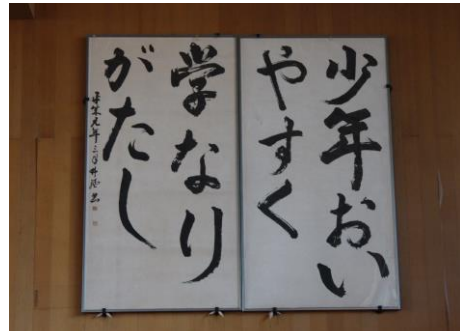 少年おい
やすく
学なり
がたし